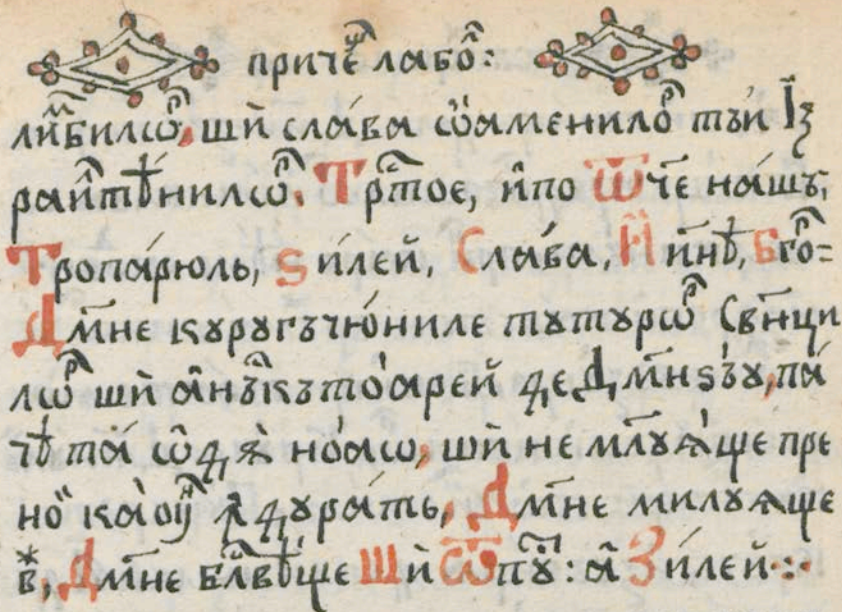 приче҇ лабо҇:
лим҇билѡр҇, шѝ сла́ва ѡ҆аменилѡ҇ тъй Із
раи҆тѣнилѡр҇. Трⷭ҇тое, и҆по ѿч҃е на́шъ,
Тропа́рюль, ѕи́лей, Сла́ва, И҆ ни҃нѣ, Бго҇=
Дм҃не кꙋрꙋгъчю́ниле тꙋтꙋрѡр҇ Свн҃ци
лѡр҇ шѝ а҆нъ҇къто́арей де Дм҃нѕъ́ꙋ, па́
чѣ та́ ѡ҆ дѫ̀ но́аѡ, шѝ не млꙋѧ́ще пре
но҇ ка̀ оуⷩ҇ ꙟ҆дꙋра́ть, Дм҃не милꙋѧще
в҃, Дм҃не бл҃вѣ́ще Шѝ Ѿпꙋ҇: а҆ Зи́лей ⁘